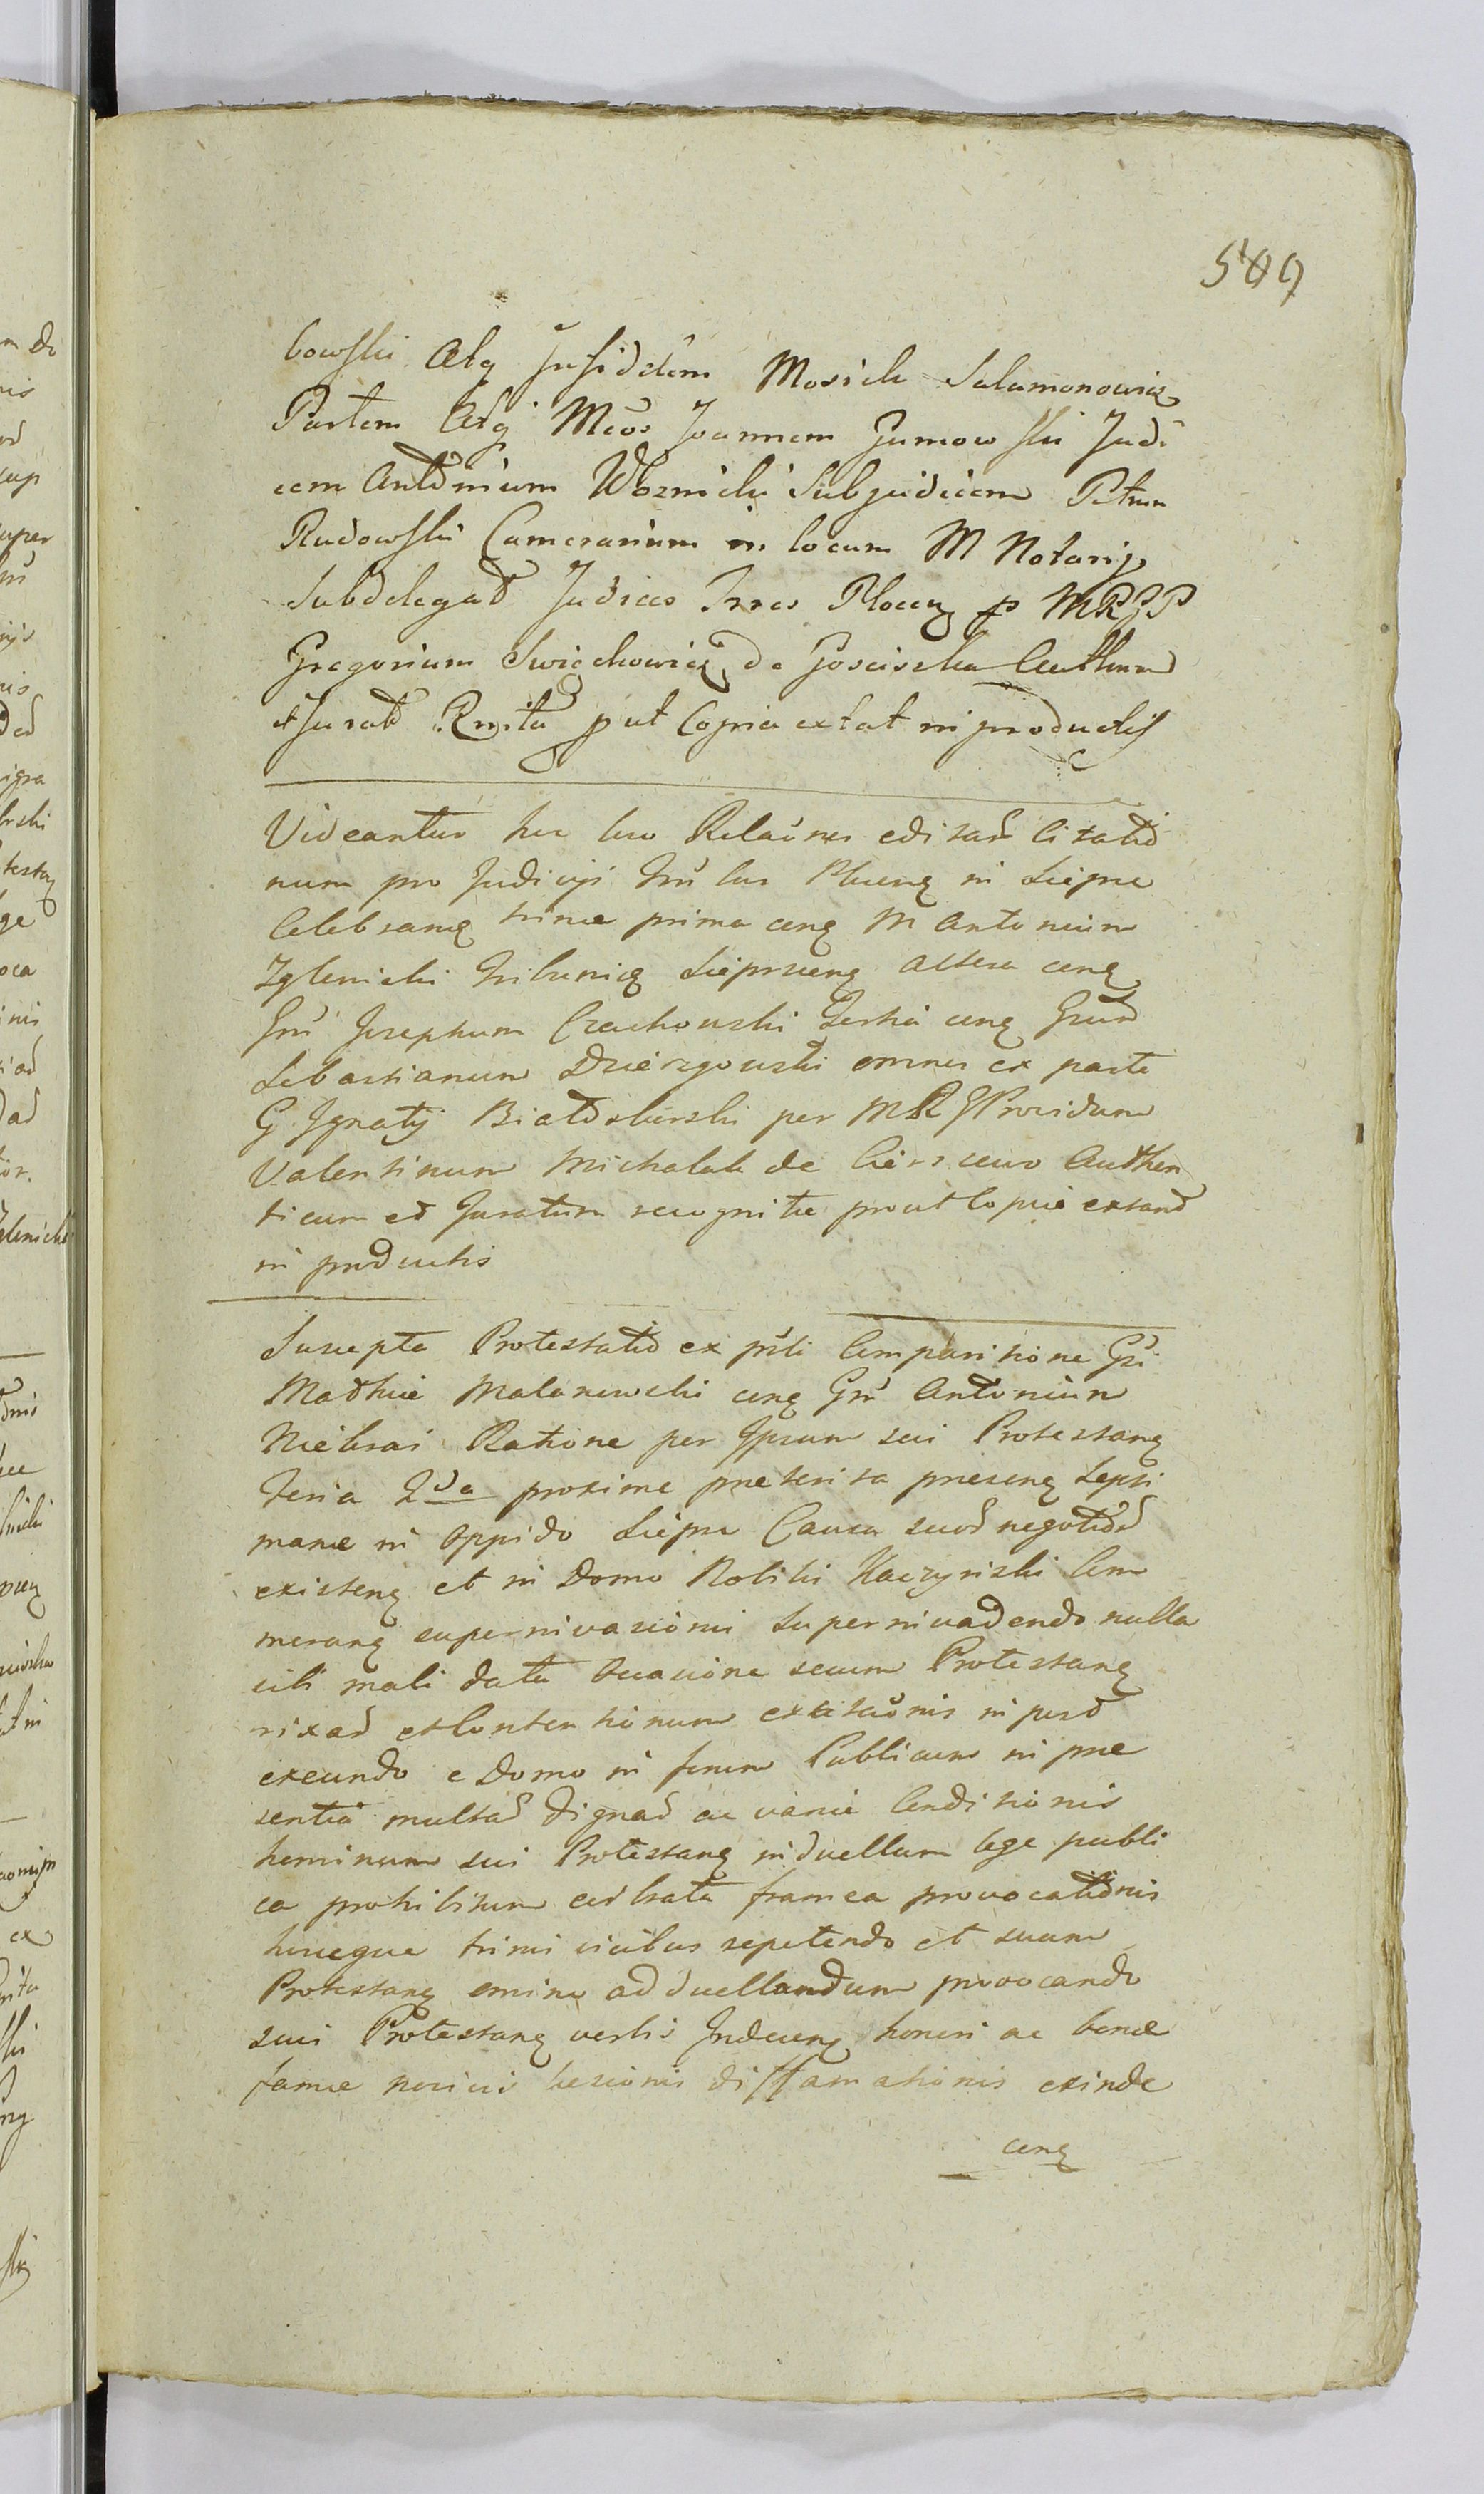 509
bowski Atq Infidelem Mosiek Salamonowicz
Partem Atq Mcos Joannem Gumowski Judi
cem Antonium Woznicki Subjudicem Petrum
Rudowski Camerarium in locum M Notarij
Subdelegat Judices Trres Plocen p MRGP
Gregorium Swięchowicz de Gosciszka Authum
et Jurat Rnita put Copia extat in productis
Videantur hic loco Relaõnes edi tar Citatio
num pro Judicijs Trũ lus Plocen in Sieprc
Celebran trinæ prima cen M Antonium
Zglenicki Tribunid Sieprcen altera cen
Gnũ Josephum Czachowski Tertia cen Gnũ
Sebastianum Dzierzgowski omnes ex parte
G Ignatij Białoskurski per MRG Providum
Valentinum Michalak de authen
ticum et Juratum recognitæ prout Copiæ extant
in productis
Suscepta Protestatio ex psti Comparitione Gsi
Mathiæ Malanowski cen Gnũ Antonium
Ratione per Ipsum sui Protestan
feria 2da proxime præterita præsen Septi
manæ in oppido Sieprc Causa suor negotior
existen et in Domo Nobilis Kaczynski Com
moran supernivasionis Supernivadendo nulla
sibi mali data occasione secum Protestan
rixar et Contentionum excitaõnis ni
exeundo e Domo in forum Publicum in præ
sentia multar dignar ac variæ Conditionis
hominum sui Protestan in duellum lege publi
ca prohibitum framea provocationis
hincque trinis vicibus repetendo et suum
Protestan ad duellandum provocando
sui Protestan verbis Indecen honori ac bonæ
famæ læsionis diffamationis exinde
cen